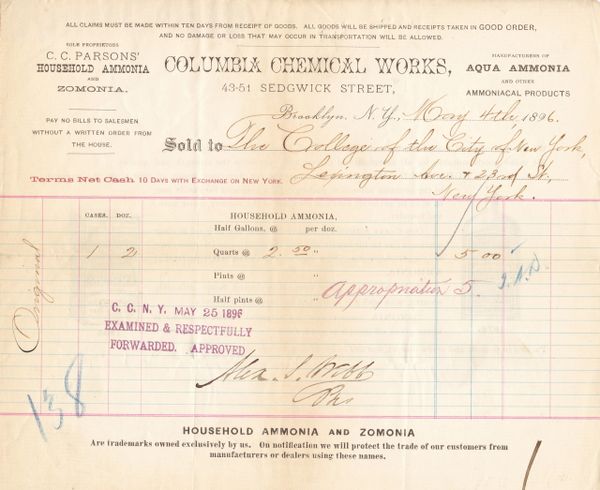 ALL CLAIMS MUST BE MADE WITHIN TEN DAYS FROM RECEIPT OF GOODS. ALL GOODS WILL BE SHIPPED AND RECEIPTS TAKEN IN GOOD ORDER,
AND NO DAMAGE OR LOSS THAT MAY OCCUR IN TRANSPORTATION WILL BE ALLOWED.
SOLE PROPRIETORS
C. C. PARSONS'
HOUSEHOLD AMMONIA
AND
ZOMONIA.
COLUMBIA CHEMICAL WORKS,
43-51 SEDGWICK STREET,
MANUFACTURERS OF
AQUA AMMONIA
AND OTHER
AMMONIACAL PRODUCTS
PAY NO BILLS TO SALESMEN
WITHOUT A WRITTEN ORDER FROM
THE HOUSE.
Brooklyn, N. Y., May 4th, 1896.
Sold to The College of the City of New York,
Lexington Ave. & 23rd St.,
New York.
Terms Net Cash 10 DAYS WITH EXCHANGE ON NEW YORK.
CASES. DOZ. HOUSEHOLD AMMONIA,
Half Gallons. @ per doz.
1 2 Quarts @ 2.50 " 5 00
Pints @ "
Half pints @ " Appropriation 5.
Original
C. C. N. Y. MAY 25 1896
EXAMINED & RESPECTFULLY
FORWARDED. APPROVED
Alex. S. Webb
Prs
138
HOUSEHOLD AMMONIA AND ZOMONIA
Are trademarks owned exclusively by us. On notification we will protect the trade of our customers from
manufacturers or dealers using these names.